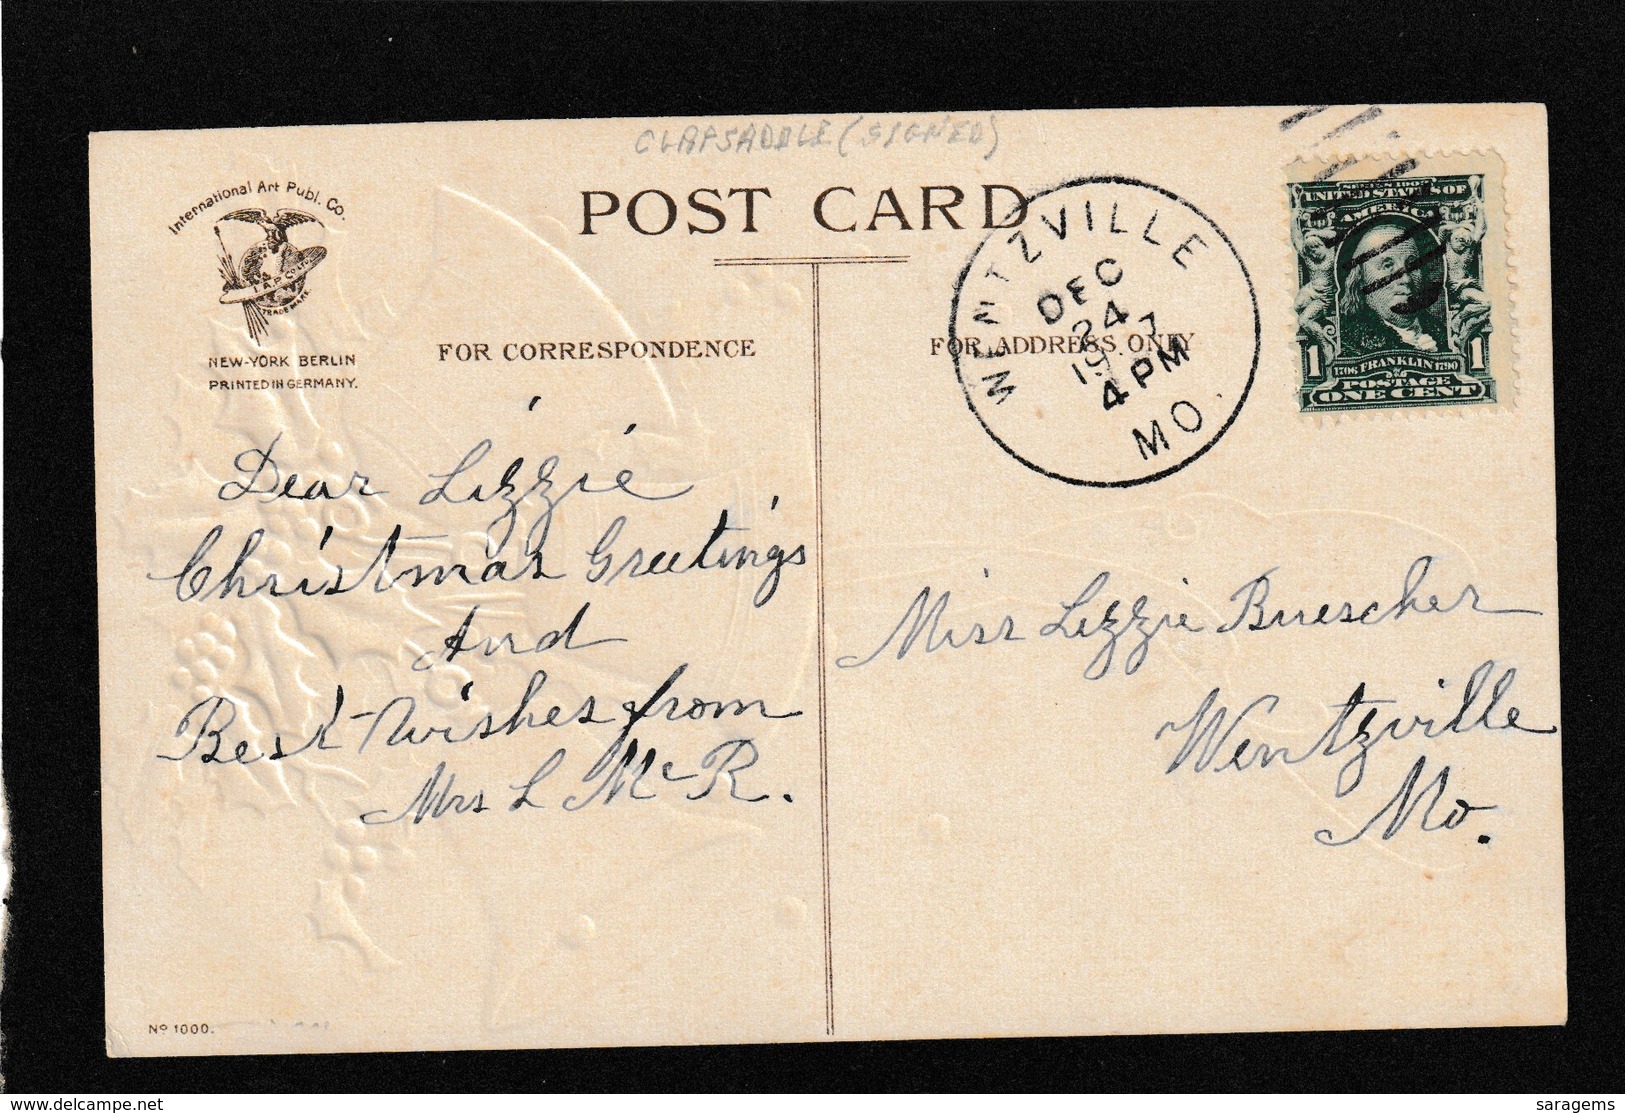 CLAPSADDLE (SIGNED)
International Art Publ. Co.
I.A.P. Co. LTD.
TRADE MARK
NEW-YORK BERLIN
PRINTED IN GERMANY.
POST CARD
FOR CORRESPONDENCE
FOR ADDRESS ONLY
WENTZVILLE
DEC
24
4 PM
MO.
SERIES 1902
UNITED STATES OF
AMERICA
1 1706 FRANKLIN 1790 1
POSTAGE
ONE CENT
Dear Lizzie
Christmas Greetings
And
Best Wishes from
Mrs L Mc R.
Miss Lizzie Buescher
Wentzville
Mo.
No 1000.
delcampe.net
saragems